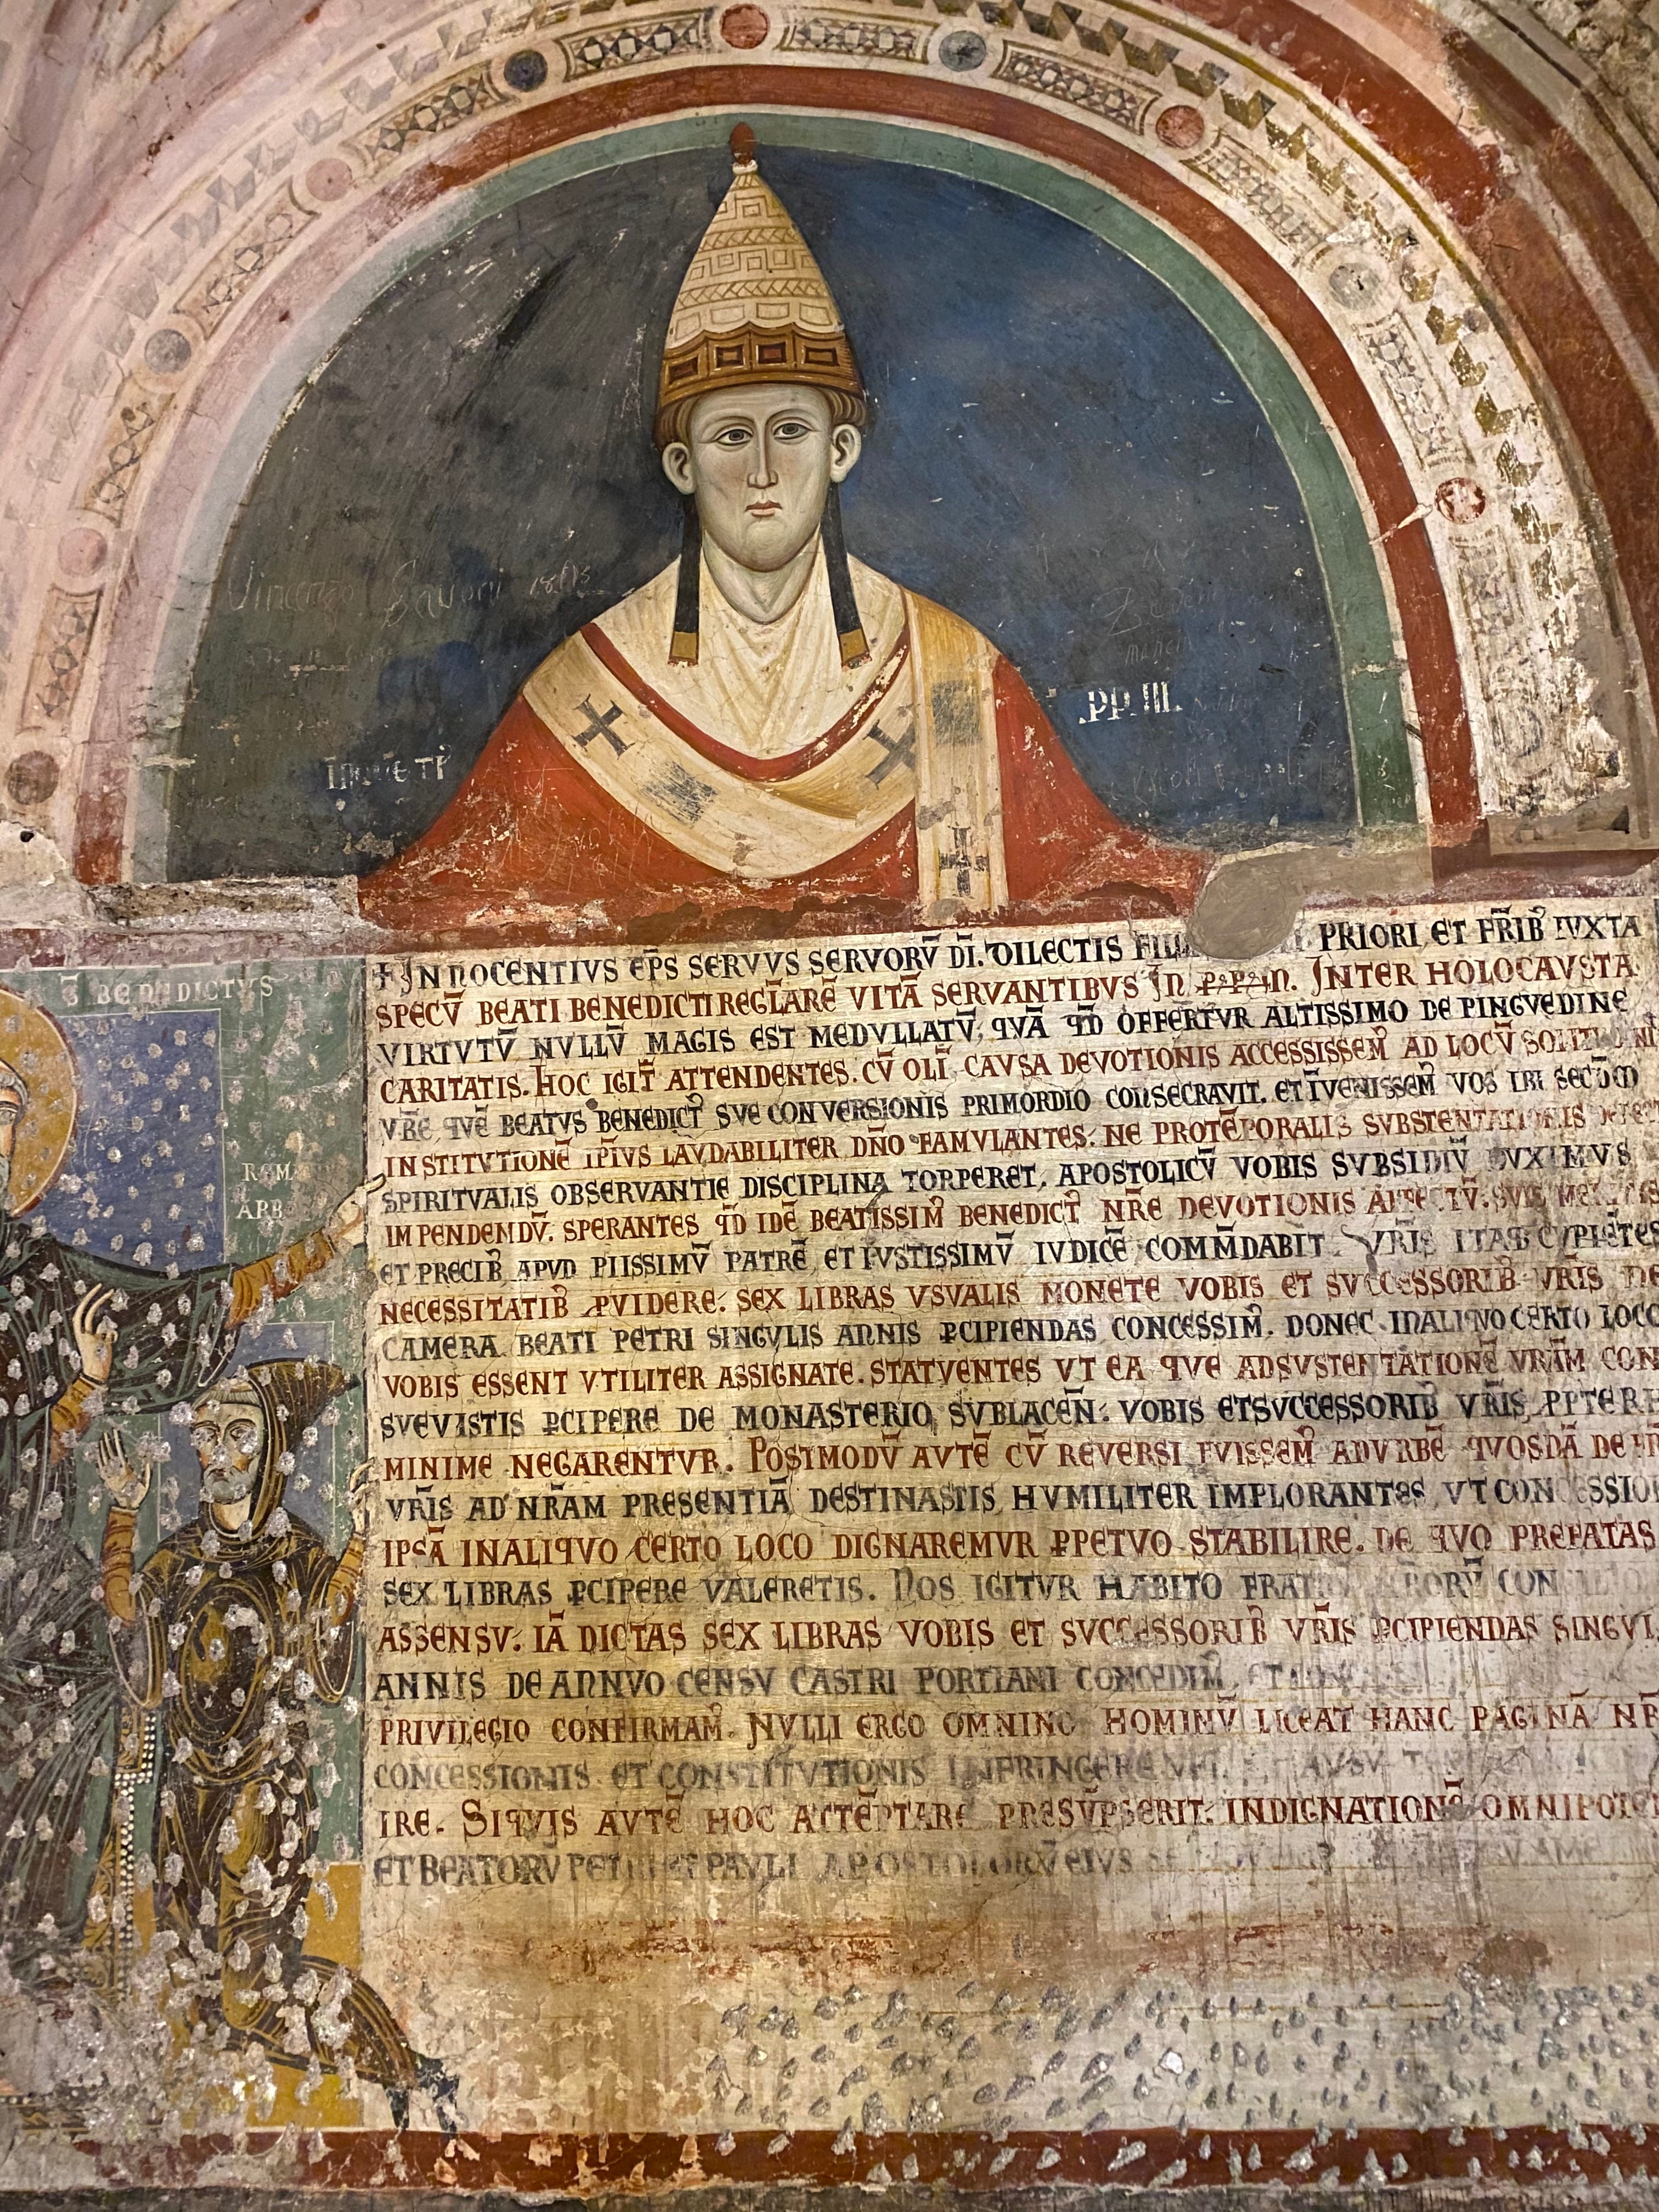 Vincenzo
PP III
S BENEDICTVS
ROMA
ABB
+ INNOCENTIVS EP̄S SERVVS SERVORV̄ DĪ. DILECTIS FILI PRIORI ET FR̄IB IVXTA
SPECV̄ BEATI BENEDICTI REGLARĒ VITĀ SERVANTIBVS IN PP̄M. INTER HOLOCAVSTA
VIRTVTV̄ NVLLV̄ MAGIS EST MEDVLLATV̄, QVĀ QD̄ OFFERTVR ALTISSIMO DE PINGVEDINE
CARITATIS. HOC IGIT̄ ATTENDENTES. CV̄ OLĪ CAVSA DEVOTIONIS ACCESSISSEM̄ AD LOCV̄
QVĒ BEATVS BENEDICT̄ SVE CONVERSIONIS PRIMORDIO CONSECRAVIT. ET ĪVENISSEM̄ VOS IBI SECD̄M
INSTITVTIONĒ IPĪVS LAVDABILITER DN̄O FAMVLANTES. NE PRO TĒPORALIS SVBSTENTATIONIS
SPIRITVALIS OBSERVANTIE DISCIPLINA TORPERET, APOSTOLICV̄ VOBIS SVBSIDIV̄ DVXIMVS
IMPENDENDV̄. SPERANTES QD̄ IDĒ BEATISSIM̄ BENEDICT̄ NR̄E DEVOTIONIS AFFECTV̄. SVIS
ET PRECIB APVD PIISSIMV̄ PATRĒ, ET IVSTISSIMV̄ IVDICĒ COMM̄DABIT. VR̄IS ITAQ CVPIĒTES
NECESSITATIB PVIDERE. SEX LIBRAS VSVALIS MONETE VOBIS ET SVCCESSORIB VR̄IS DE
CAMERA BEATI PETRI SINGVLIS ANNIS PCIPIENDAS CONCESSIM̄. DONEC IN ALIQVO CERTO LOCO
VOBIS ESSENT VTILITER ASSIGNATE. STATVENTES VT EA QVE AD SVSTENTATIONĒ VR̄AM CON
SVEVISTIS PCIPERE DE MONASTERIO SVBLACEN̄. VOBIS ET SVCCESSORIB VR̄IS
MINIME NEGARENTVR. POSTMODV̄ AVTĒ CV̄ REVERSI FVISSEM̄ AD VRBĒ QVOSDĀ DE
VR̄IS AD NR̄AM PRESENTIĀ DESTINASTIS HVMILITER IMPLORANTES, VT CONCESSIO
IPSĀ IN ALIQVO CERTO LOCO DIGNAREMVR PPETVO STABILIRE. DE QVO PREFATAS
SEX LIBRAS PCIPERE VALERETIS. NOS IGITVR HABITO
ASSENSV. IĀ DICTAS SEX LIBRAS VOBIS ET SVCCESSORIB VR̄IS PCIPIENDAS SINGVL
ANNIS DE ANNVO CENSV CASTRI PORTIANI CONCEDIM̄. ET
PRIVILEGIO CONFIRMAM̄. NVLLI ERGO OMNINO HOMINV̄ LICEAT HANC PAGINĀ
CONCESSIONIS ET CONSTITVTIONIS INFRINGERE VEL AVSV
IRE. SI QVIS AVTĒ HOC ATTĒPTARE PRESV̄PSERIT. INDIGNATIONĒ OMNIPOTE
ET BEATORV̄ PETRI ET PAVLI APOSTOLORV̄ EIVS